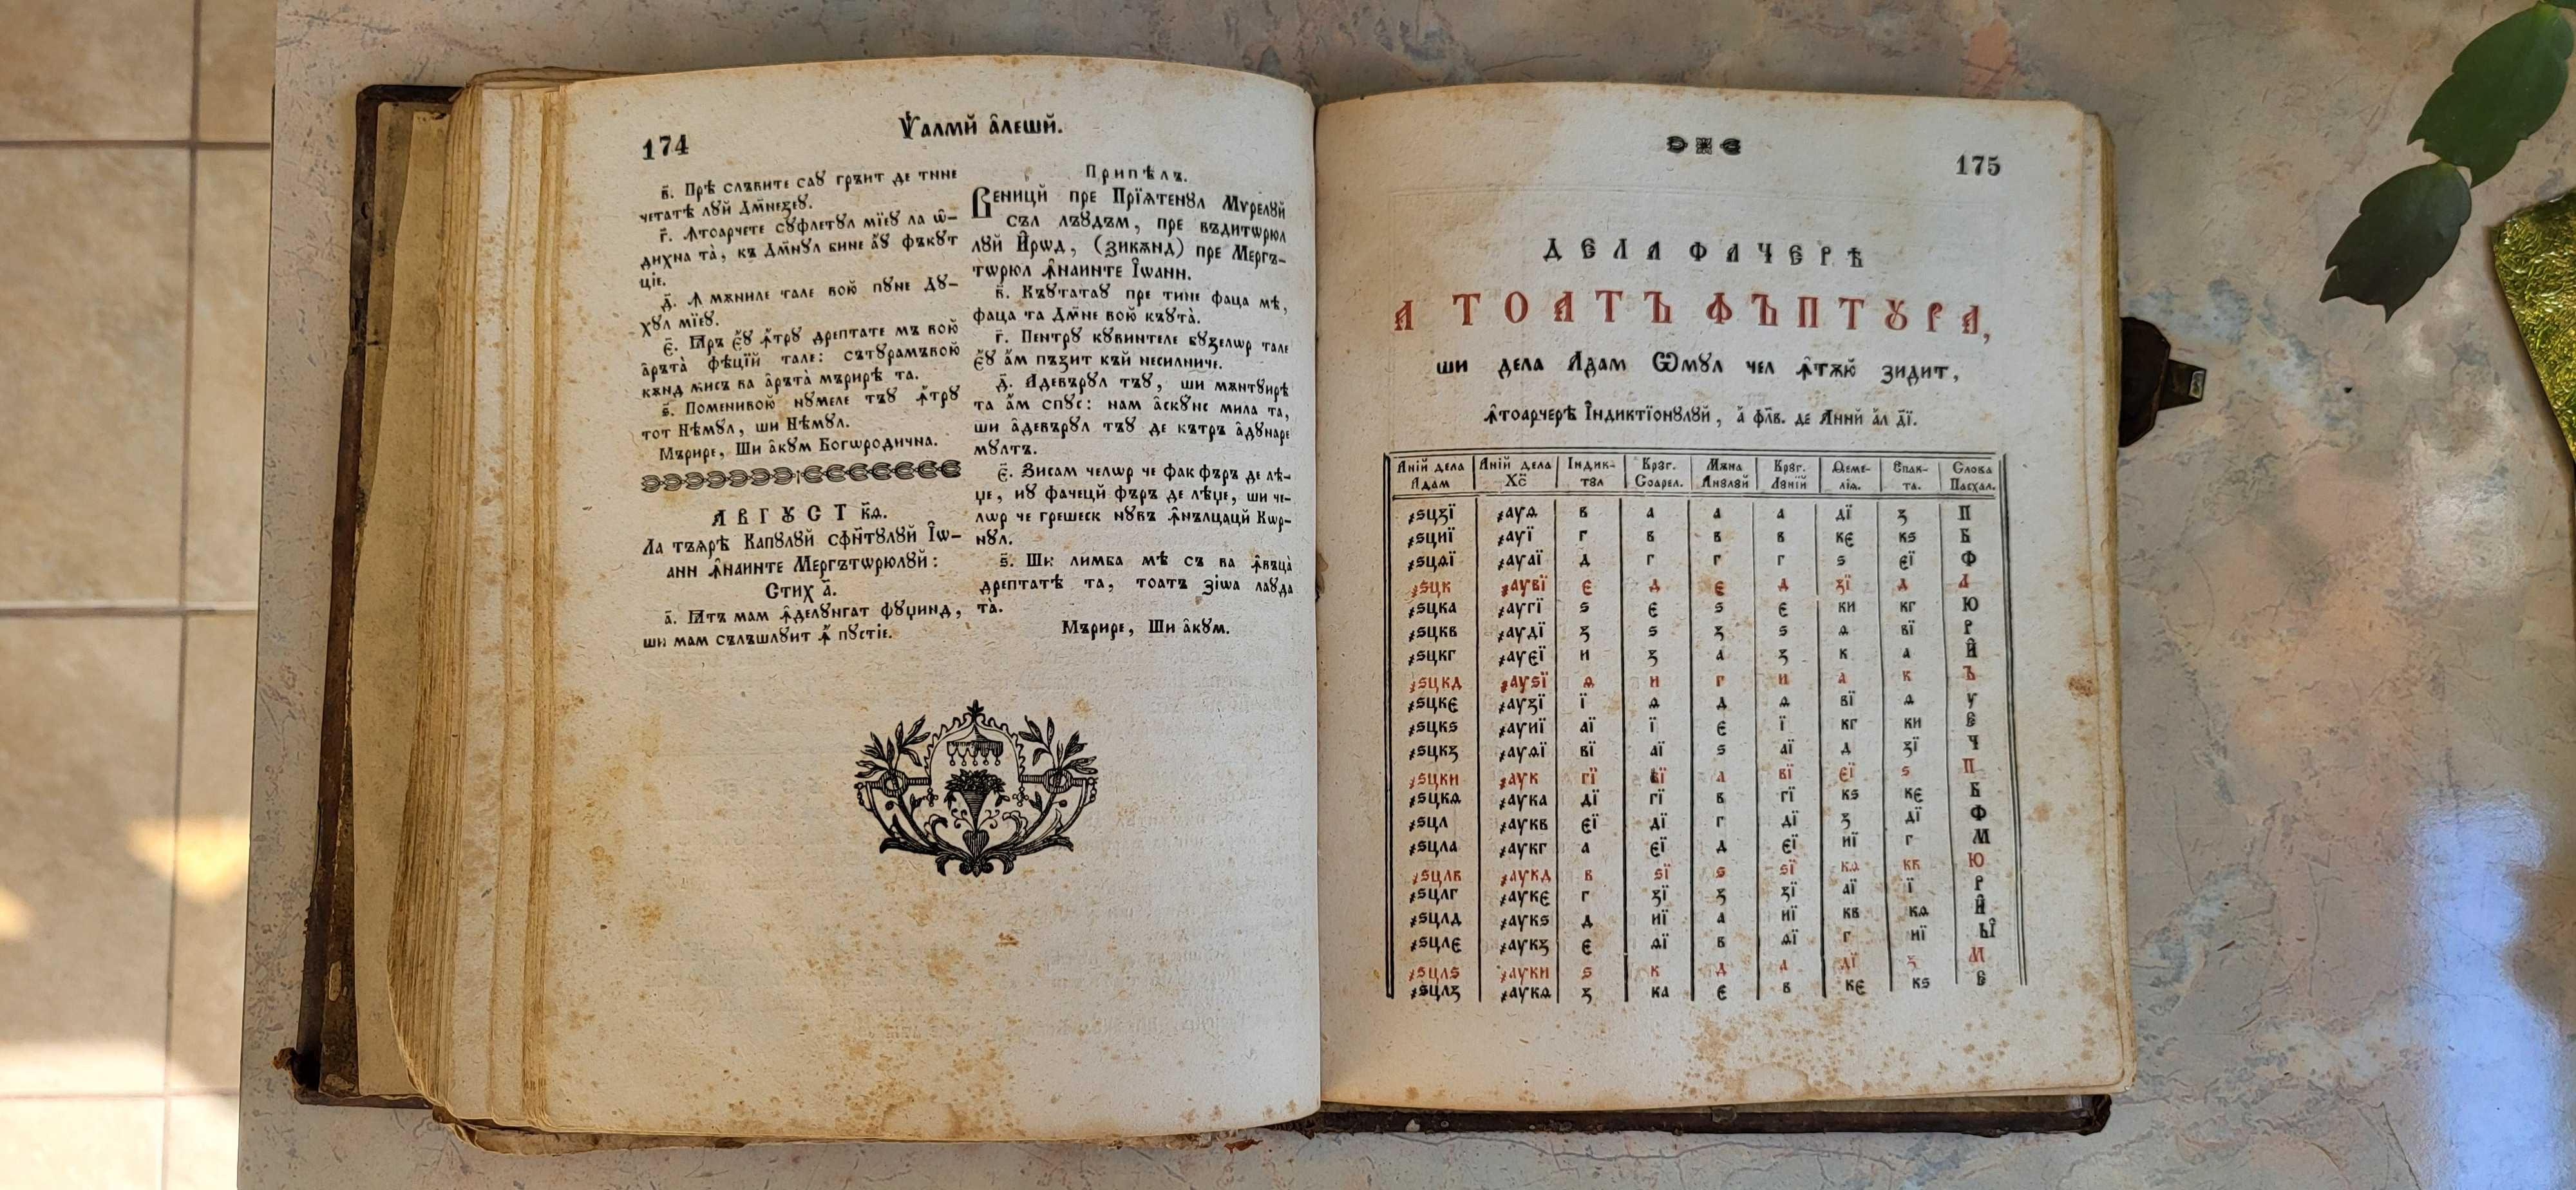 174
Ѱалмй а̂лешй.
в҃. Прѣ слъвите саꙋ гръит де тине
четатѣ лꙋй Дм҃незеꙋ.
г҃. Ꙟтоарчете сꙋфлетꙋл мїеꙋ ла ѡ̂-
дихна та̀, къ Дм҃нꙋл бине аꙋ фъкꙋт
ціе.
д҃. Ꙟ мѫниле тале вою̆ пꙋне Дꙋ-
хꙋл мїеꙋ.
є҃. Ꙗръ є҆ꙋ ꙟтрꙋ дрептате мъ вою̆
а̂ръта̀ фѣцїй тале: сътꙋрамъвою̆
кѫнд мисъ ва а̂ръта̀ мърирѣ та.
ѕ҃. Поменивою̆ нꙋмеле тъꙋ ꙟтрꙋ
тот Нѣмꙋл, ши Нѣмꙋл.
Мърире, Ши а̂кꙋм Богѡродична.
АВГꙋСТ к҃ѳ.
Ла тъꙗрѣ Капꙋлꙋй сфн҃тꙋлꙋй І̂ѡ-
анн ꙟнаинте Мергътѡрюлꙋй:
Стих а҃.
а҃. Ꙗтъ мам ꙟделꙋнгат фꙋџинд,
ши мам сълъшлꙋит ꙟ пꙋстіе.
Припѣлъ.
Веницй пре Прїѧтенꙋл Мѵрелꙋй
съл лъꙋдъм, пре въдитѡрюл
лꙋй И̂рѡд, (зикѫнд) пре Мергъ-
тѡрюл ꙟнаинте І̂ѡанн.
в҃. Къꙋтатаꙋ пре тине фаца мѣ,
фаца та Дм҃не вою̆ къꙋта̀.
г҃. Пентрꙋ кꙋвинтеле бꙋзелѡр тале
є҆ꙋ а҆м пъзит къй несилниче.
д҃. Адевърꙋл тъꙋ, ши мѫнтꙋирѣ
та а҆м спꙋс: нам а̂скꙋнс мила та,
ши а̂девърꙋл тъꙋ де кътръ а̂дꙋнаре
мꙋлтъ.
є҃. Зисам челѡр че фак фъръ де лѣ-
џе, нꙋ фачецй фъръ де лѣџе, ши че-
лѡр че грешеск нꙋвъ ꙟнълцацй Кѡр-
нꙋл.
ѕ҃. Ши лимба мѣ съ ва ꙟвъца̀
дрептатѣ та, тоатъ зіѡа лаꙋда
та̀.
Мърире, Ши а̂кꙋм.
175
ДЕЛА ФАЧЕРѢ
А ТОАТЪ ФЪПТꙋРА,
ши дела Адам Ѡмꙋл чел ꙟтѫю̆ зидит,
ꙟтоарчерѣ І̂ндиктїонꙋлꙋй, а҆ фл҃в. де Аннй а҆л д҃ї.
Аній дела Адам | Аній дела Хс҃ | Індик-тꙋл | Крꙋг. Соарел. | Мѫна Анꙋлꙋй | Крꙋг. Лꙋнїй | Ѳеме-лїа. | Епак-та. | Слова Пасхал.
҂ѕцзї ҂аѵѳ в а а а дї з П
҂ѕциї ҂аѵї г в в в кє кѕ Б
҂ѕцѳї ҂аѵаї д г г г ѕ єї Ф
҂ѕцк ҂аѵвї є д є д зї д Л
҂ѕцка ҂аѵгї ѕ є ѕ є ки кг Ю
҂ѕцкв ҂аѵдї з ѕ з ѕ ѳ вї Р
҂ѕцкг ҂аѵєї и з а з к а Й
҂ѕцкд ҂аѵѕї ѳ и г и а к Ъ
҂ѕцкє ҂аѵзї ї ѳ д ѳ вї ѳ У
҂ѕцкѕ ҂аѵиї аї ї є ї кг ки Е
҂ѕцкз ҂аѵѳї вї аї ѕ аї д зї Ч
҂ѕцки ҂аѵк гї вї а вї єї ѕ П
҂ѕцкѳ ҂аѵка дї гї в гї кѕ кє Б
҂ѕцл ҂аѵкв єї дї г дї з дї Ф
҂ѕцла ҂аѵкг а єї д єї иї г М
҂ѕцлв ҂аѵкд в ѕї ѕ ѕї кѳ кв Ю
҂ѕцлг ҂аѵкє г зї з зї аї ї Р
҂ѕцлд ҂аѵкѕ д иї а иї кв кѳ Й
҂ѕцлє ҂аѵкз є ѳї в ѳї г иї Ы
҂ѕцлѕ ҂аѵки ѕ к д а дї з М
҂ѕцлз ҂аѵкѳ з ка є в кє кѕ Е